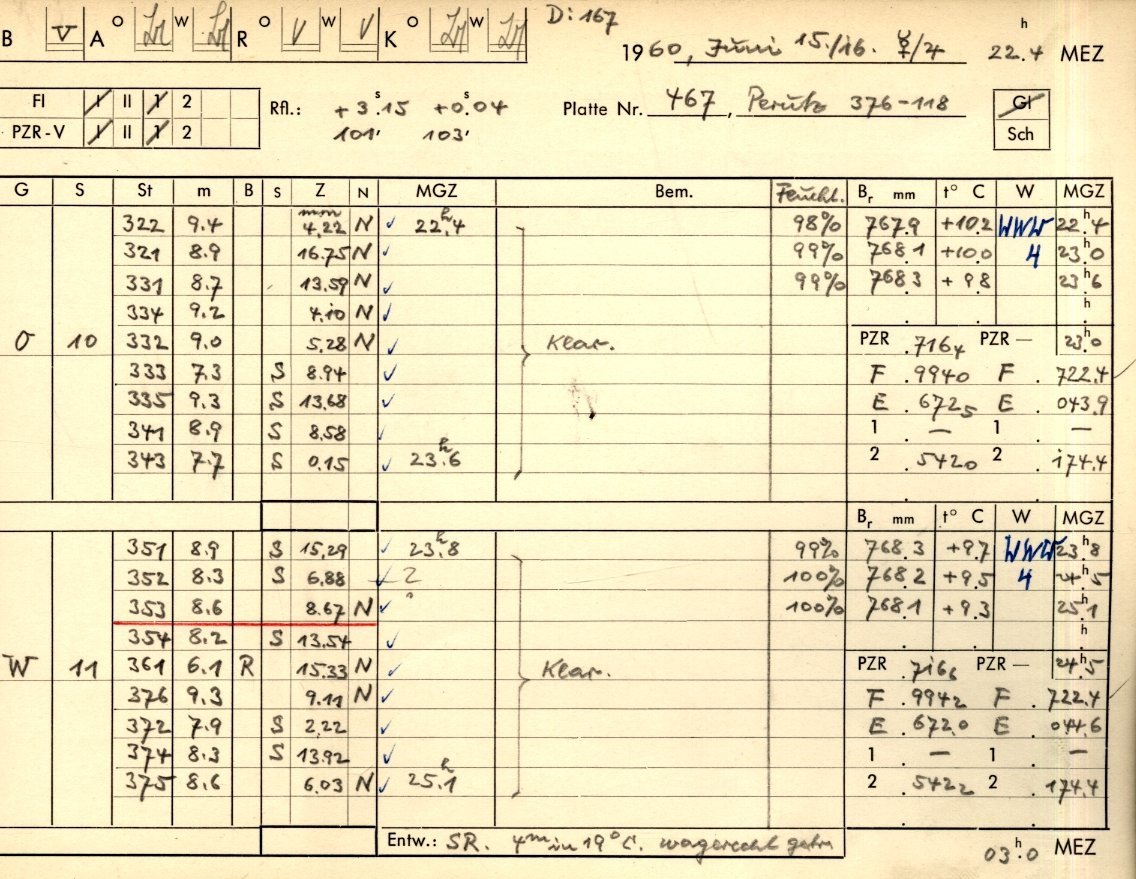 D: 167
B V A O W R O V W V K O W
1960, Juni 15./16. ☿/♃ 22.4 h MEZ
FI 1 II 1 2 Rfl.: +3.s15 +0.s04 Platte Nr. 467, Perutz 376-118 Gl
PZR-V 1 II 1 2 101' 103' Sch
G S St m B S Z N MGZ Bem. Feucht. Br mm t° C W MGZ
322 9.4 mm 4,22 N ✓ 22h.4 98% 767.9 +10.2 WWW 22h.4
321 8.9 16.75 N ✓ 99% 768.1 +10.0 4 23h.0
331 8.7 13.59 N ✓ 99% 768.3 +9.8 23h.6
334 9.2 4.10 N ✓ h
O 10 332 9.0 5.28 N ✓ Klar. PZR .7164 PZR — 23h.0
333 7.3 S 8.94 ✓ F .9940 F . 722.4
335 9.3 S 13,68 ✓ E .6725 E . 043.9
341 8.9 S 8.58 ✓ 1 . — 1 . —
343 7.7 S 0.15 ✓ 23h.6 2 .5420 2 . 174.4
Br mm t° C W MGZ
351 8.9 S 15,29 ✓ 23h.8 99% 768.3 +9.7 WWW 23h.8
352 8.3 S 6.88 ✓ 2 100% 768.2 +9.5 4 24h.5
353 8.6 8.67 N ✓ 100% 768.1 +9.3 25h.1
354 8.2 S 13.54 ✓ h
W 11 361 6.1 R 15.33 N ✓ Klar. PZR .7166 PZR — 24h.5
376 9.3 9.11 N ✓ F .9942 F . 722.4
372 7.9 S 2,22 ✓ E .6720 E . 044.6
374 8.3 S 13.92 ✓ 1 . — 1 . —
375 8.6 6.03 N ✓ 25h.1 2 .5422 2 . 174.4
Entw.: SR. 4m in 19°C. wagerecht getr.
03h.0 MEZ